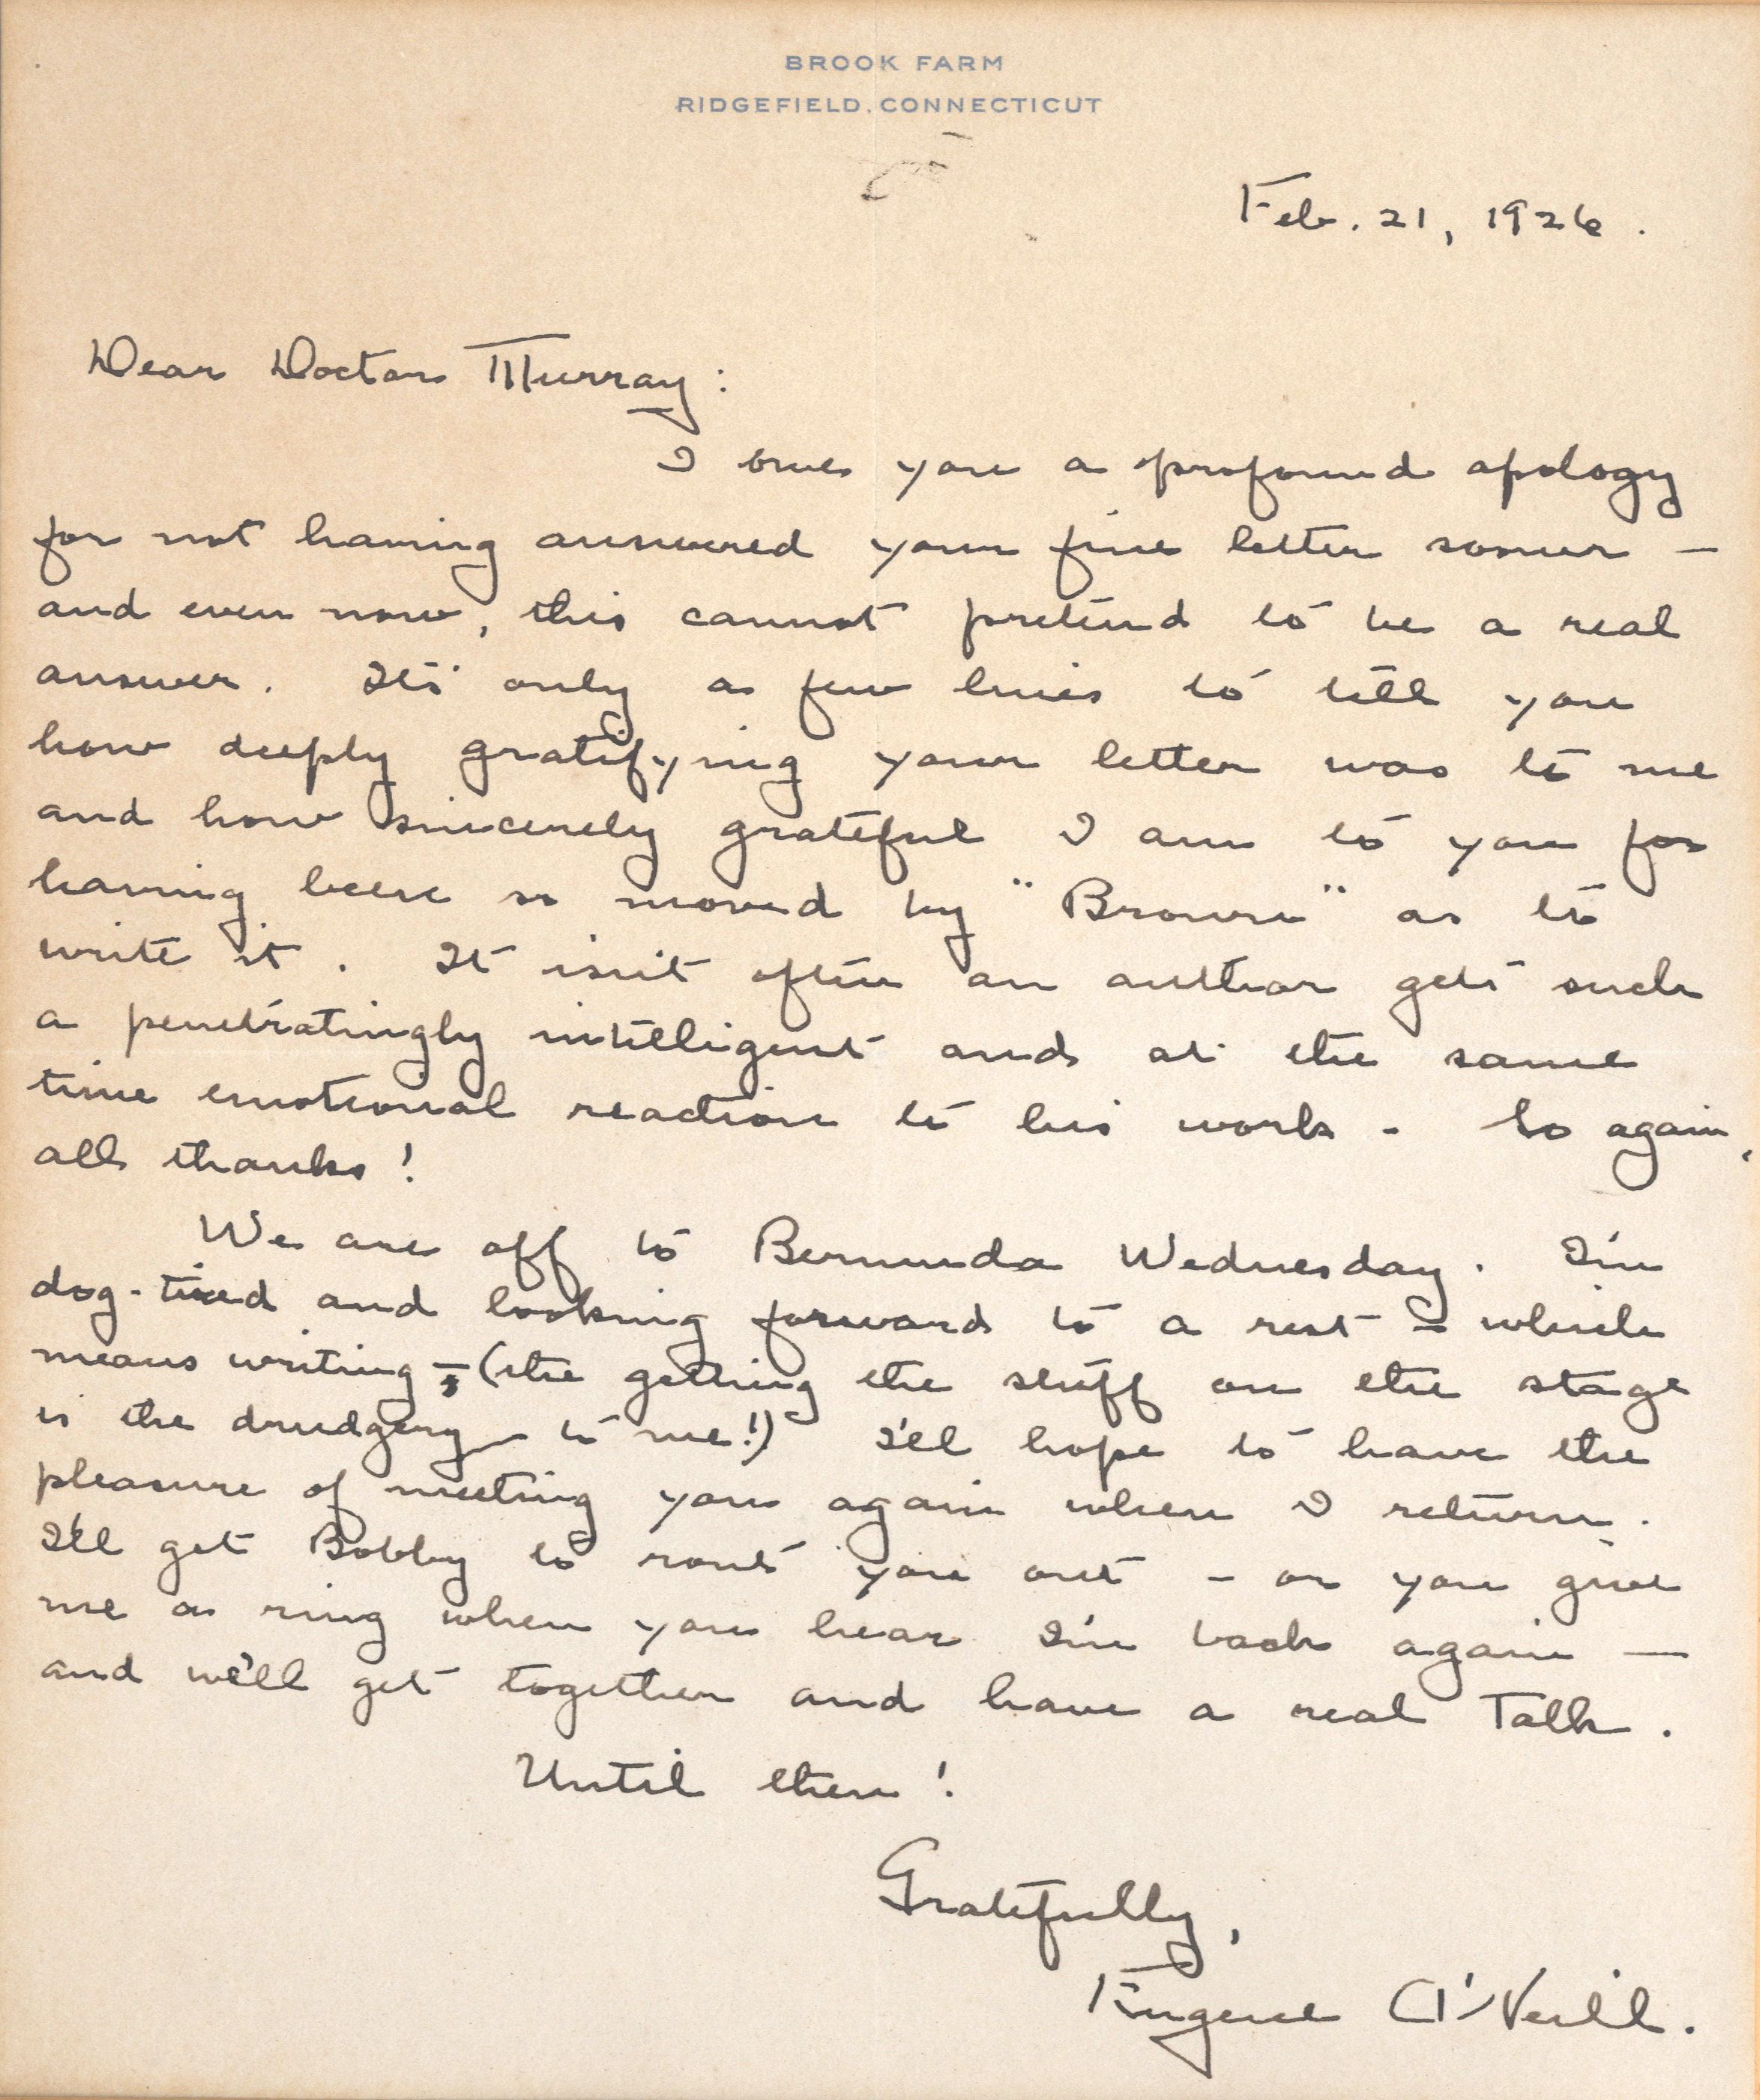 BROOK FARM
RIDGEFIELD, CONNECTICUT
Feb. 21, 1926.
Dear Doctor Murray:
I owe you a profound apology
for not having answered your fine letter sooner –
and even now, this cannot pretend to be a real
answer. It's only a few lines to tell you
how deeply gratifying your letter was to me
and how sincerely grateful I am to you for
having been so moved by "Brown" as to
write it. It isn't often an author gets such
a penetratingly intelligent and at the same
time emotional reaction to his work. So again,
all thanks!
We are off to Bermuda Wednesday. I'm
dog-tired and looking forward to a rest – which
means writing – (the getting the stuff on the stage
is the drudgery to me!) I'll hope to have the
pleasure of meeting you again when I return.
I'll get Bobby to rout you out – or you give
me a ring when you hear I'm back again —
and we'll get together and have a real Talk.
Until then!
Gratefully,
Eugene O'Neill.